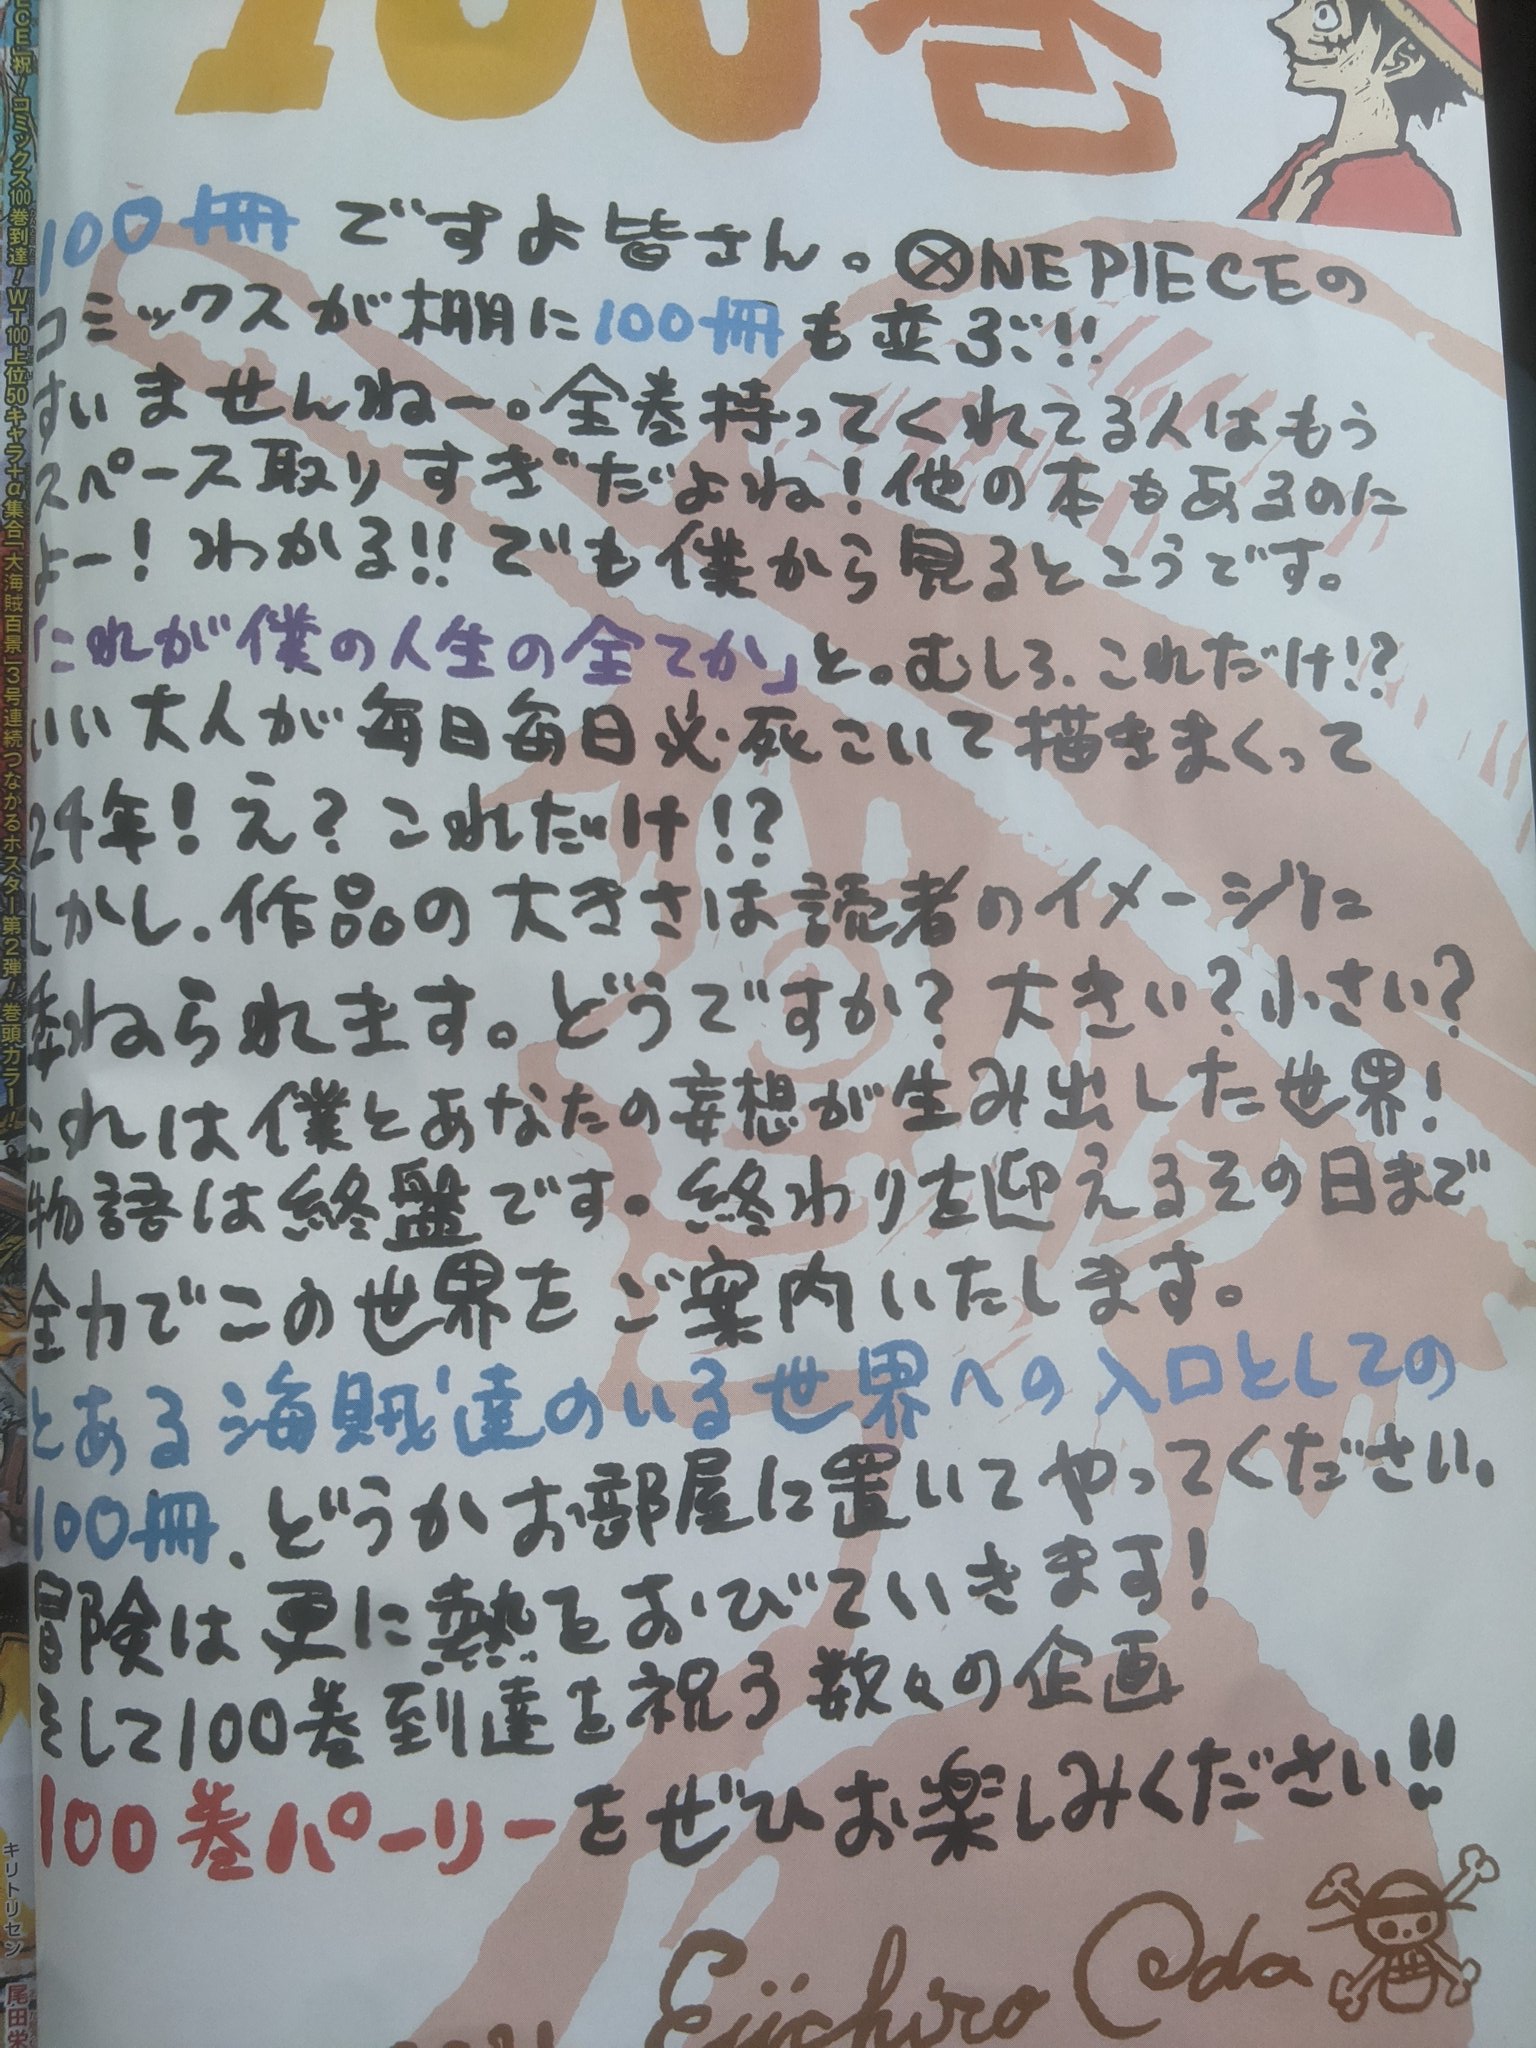 100巻
100冊ですよ皆さん。ONE PIECEの
コミックスが棚に100冊も並ぶ!!
すいませんねー。全巻持ってくれてる人はもう
スペース取りすぎだよね!他の本もあるのに
よー!わかる!!でも僕から見るとこうです。
「これが僕の人生の全てか」と。むしろ、これだけ!?
いい大人が毎日毎日必死こいて描きまくって
24年!え?これだけ!?
しかし、作品の大きさは読者のイメージに
委ねられます。どうですか?大きい?小さい?
これは僕とあなたの妄想が生み出した世界!
物語は終盤です。終わりを迎えるその日まで
全力でこの世界をご案内いたします。
とある海賊達のいる世界への入口としての
100冊、どうかお部屋に置いてやってください。
冒険は更に熱をおびていきます!
そして100巻到達を祝う数々の企画
100巻パーリーをぜひお楽しみください!!
Eiichiro Oda
ECE」祝!コミックス100巻到達!WT100上位50キャラ+α集合「大海賊百景」3号連続つながるポスター第2弾!巻頭カラー!!
キリトリセン
尾田栄